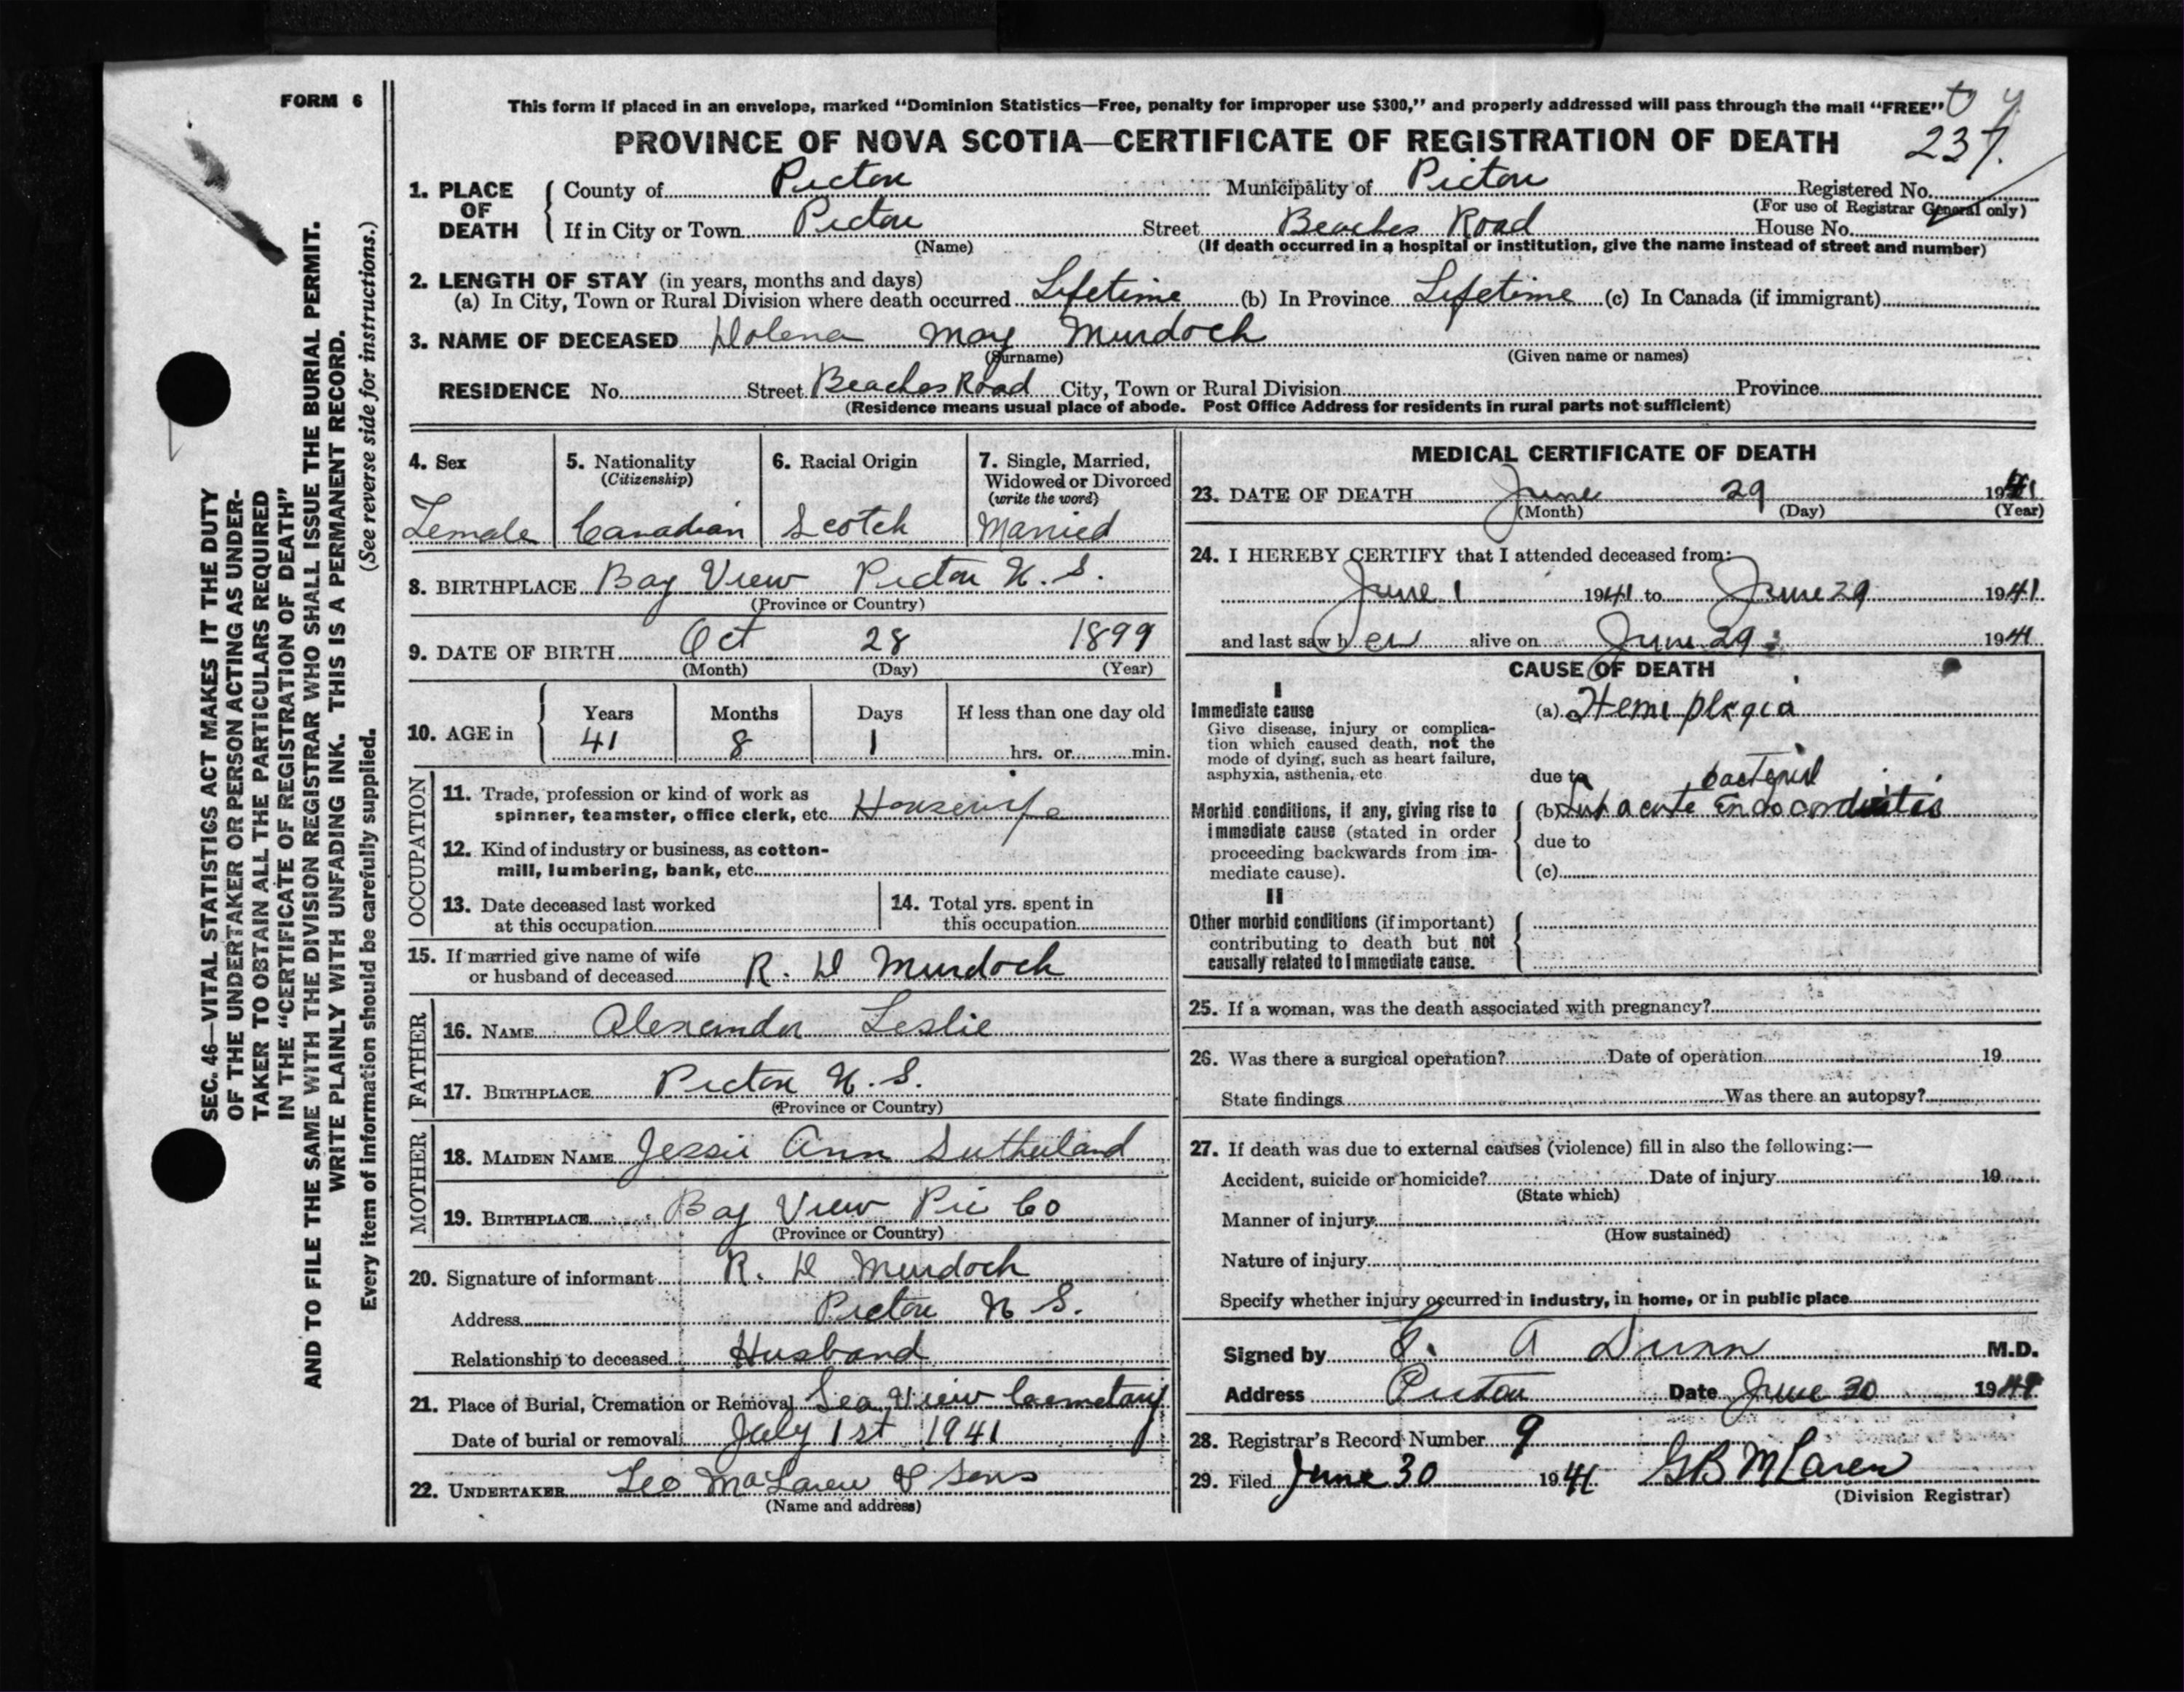 FORM 6
SEC. 46—VITAL STATISTICS ACT MAKES IT THE DUTY
OF THE UNDERTAKER OR PERSON ACTING AS UNDER-
TAKER TO OBTAIN ALL THE PARTICULARS REQUIRED
IN THE "CERTIFICATE OF REGISTRATION OF DEATH"
AND TO FILE THE SAME WITH THE DIVISION REGISTRAR WHO SHALL ISSUE THE BURIAL PERMIT.
WRITE PLAINLY WITH UNFADING INK. THIS IS A PERMANENT RECORD.
Every item of information should be carefully supplied. (See reverse side for instructions.)
This form if placed in an envelope, marked "Dominion Statistics—Free, penalty for improper use $300," and properly addressed will pass through the mail "FREE"
PROVINCE OF NOVA SCOTIA—CERTIFICATE OF REGISTRATION OF DEATH
237.
1. PLACE OF DEATH County of Pictou Municipality of Pictou Registered No.
(For use of Registrar General only)
If in City or Town Pictou Street Beaches Road House No.
(Name) (If death occurred in a hospital or institution, give the name instead of street and number)
2. LENGTH OF STAY (in years, months and days)
(a) In City, Town or Rural Division where death occurred Lifetime (b) In Province Lifetime (c) In Canada (if immigrant)
3. NAME OF DECEASED Dolena May Murdoch
(Surname) (Given name or names)
RESIDENCE No. Street Beaches Road City, Town or Rural Division Province
(Residence means usual place of abode. Post Office Address for residents in rural parts not sufficient)
4. Sex
Female
5. Nationality
(Citizenship)
Canadian
6. Racial Origin
Scotch
7. Single, Married,
Widowed or Divorced
(write the word)
Married
8. BIRTHPLACE Bay View Pictou N.S.
(Province or Country)
9. DATE OF BIRTH Oct 28 1899
(Month) (Day) (Year)
10. AGE in Years Months Days If less than one day old
41 8 1 hrs. or min.
OCCUPATION
11. Trade, profession or kind of work as
spinner, teamster, office clerk, etc. Housewife
12. Kind of industry or business, as cotton-
mill, lumbering, bank, etc.
13. Date deceased last worked
at this occupation
14. Total yrs. spent in
this occupation
15. If married give name of wife
or husband of deceased R. D Murdoch
FATHER
16. NAME Alexander Leslie
17. BIRTHPLACE Pictou N.S.
(Province or Country)
MOTHER
18. MAIDEN NAME Jessie Ann Sutherland
19. BIRTHPLACE Bay View Pic Co
(Province or Country)
20. Signature of informant R. D Murdoch
Address Pictou N S.
Relationship to deceased Husband
21. Place of Burial, Cremation or Removal Sea View Cemetary
Date of burial or removal July 1st 1941
22. UNDERTAKER Leo McLaren & Sons
(Name and address)
MEDICAL CERTIFICATE OF DEATH
23. DATE OF DEATH June 29 1941
(Month) (Day) (Year)
24. I HEREBY CERTIFY that I attended deceased from:
June 1 1941 to June 29 1941
and last saw her alive on June 29 1941
CAUSE OF DEATH
I
Immediate cause
Give disease, injury or complica-
tion which caused death, not the
mode of dying, such as heart failure,
asphyxia, asthenia, etc
(a) Hemiplegia
due to bacterial
Morbid conditions, if any, giving rise to
immediate cause (stated in order
proceeding backwards from im-
mediate cause).
(b) Subacute Endocarditis
due to
(c)
II
Other morbid conditions (if important)
contributing to death but not
causally related to immediate cause.
25. If a woman, was the death associated with pregnancy?
26. Was there a surgical operation? Date of operation 19
State findings Was there an autopsy?
27. If death was due to external causes (violence) fill in also the following:—
Accident, suicide or homicide? Date of injury 19
(State which)
Manner of injury
(How sustained)
Nature of injury
Specify whether injury occurred in industry, in home, or in public place
Signed by A Dunn M.D.
Address Pictou Date June 30 1941
28. Registrar's Record Number 9
29. Filed June 30 1941 GB McLaren
(Division Registrar)